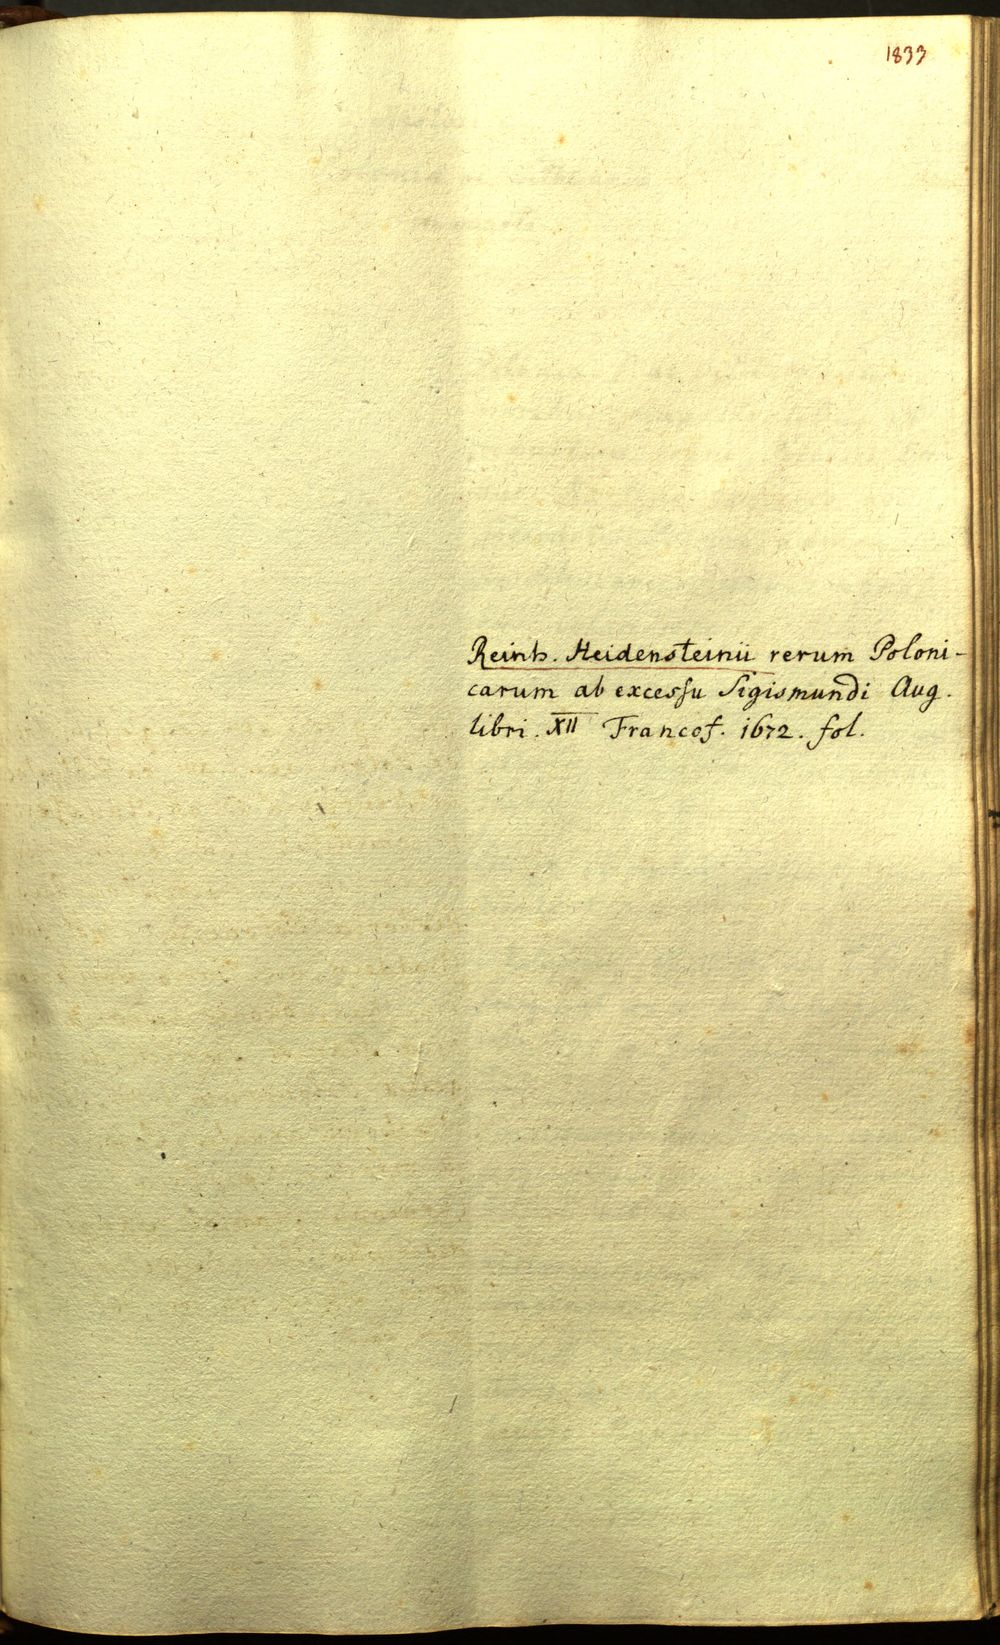 1833
Reinh. Heidensteinii rerum Poloni-
carum ab excessu Sigismundi Aug.
libri. XII Francof. 1672. fol.